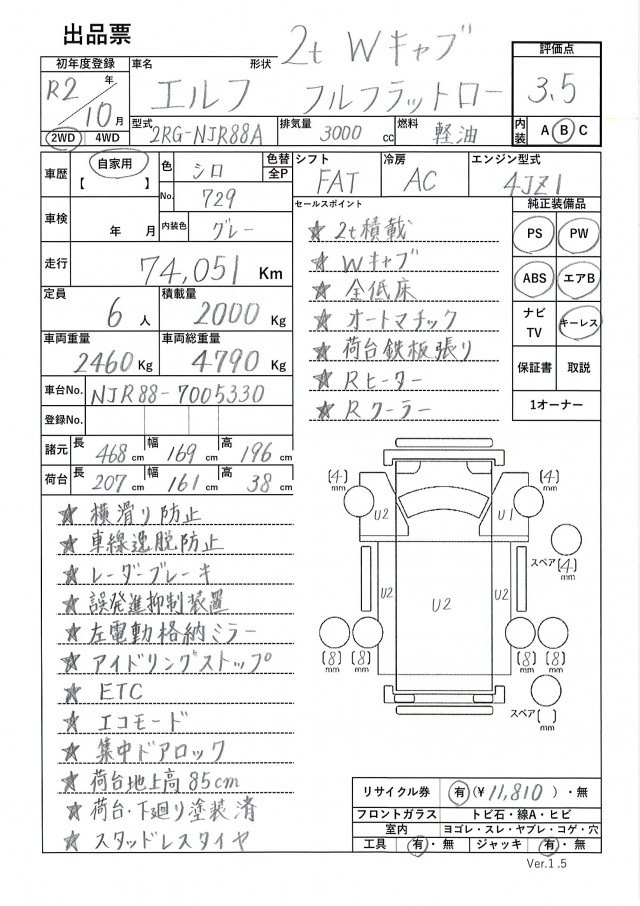 出品票
2t Wキャブ
初年度登録 車名 形状 評価点
R2年 エルフ フルフラットロー 3.5
10月
2WD 4WD 型式 2RG-NJR88A 排気量 3000cc 燃料 軽油 内装 A B C
車歴 自家用 色 シロ 色替 全P シフト FAT 冷房 AC エンジン型式 4JZ1
【 】 No. 729 セールスポイント 純正装備品
車検 年 月 内装色 グレー ★ 2t積載 PS PW
走行 74,051 Km ★ Wキャブ
★ 全低床 ABS エアB
定員 6人 積載量 2000Kg ★ オートマチック ナビTV キーレス
車両重量 2460Kg 車両総重量 4790Kg ★ 荷台鉄板張り
★ Rヒーター 保証書 取説
車台No. NJR88-7005330 ★ Rクーラー 1オーナー
登録No.
諸元 長 468cm 幅 169cm 高 196cm
荷台 長 207cm 幅 161cm 高 38cm
(4)mm (4)mm
U2 U1
スペア(4)mm
U2 U2 U2
(8)mm (8)mm (8)mm (8)mm
スペア( )mm
★ 横滑り防止
★ 車線逸脱防止
★ レーダーブレーキ
★ 誤発進抑制装置
★ 左電動格納ミラー
★ アイドリングストップ
★ ETC
★ エコモード
★ 集中ドアロック
★ 荷台地上高85cm
★ 荷台・下廻り塗装済
★ スタッドレスタイヤ
リサイクル券 有(¥11,810)・無
フロントガラス トビ石・線A・ヒビ
室内 ヨゴレ・スレ・ヤブレ・コゲ・穴
工具 有・無 ジャッキ 有・無
Ver.1.5